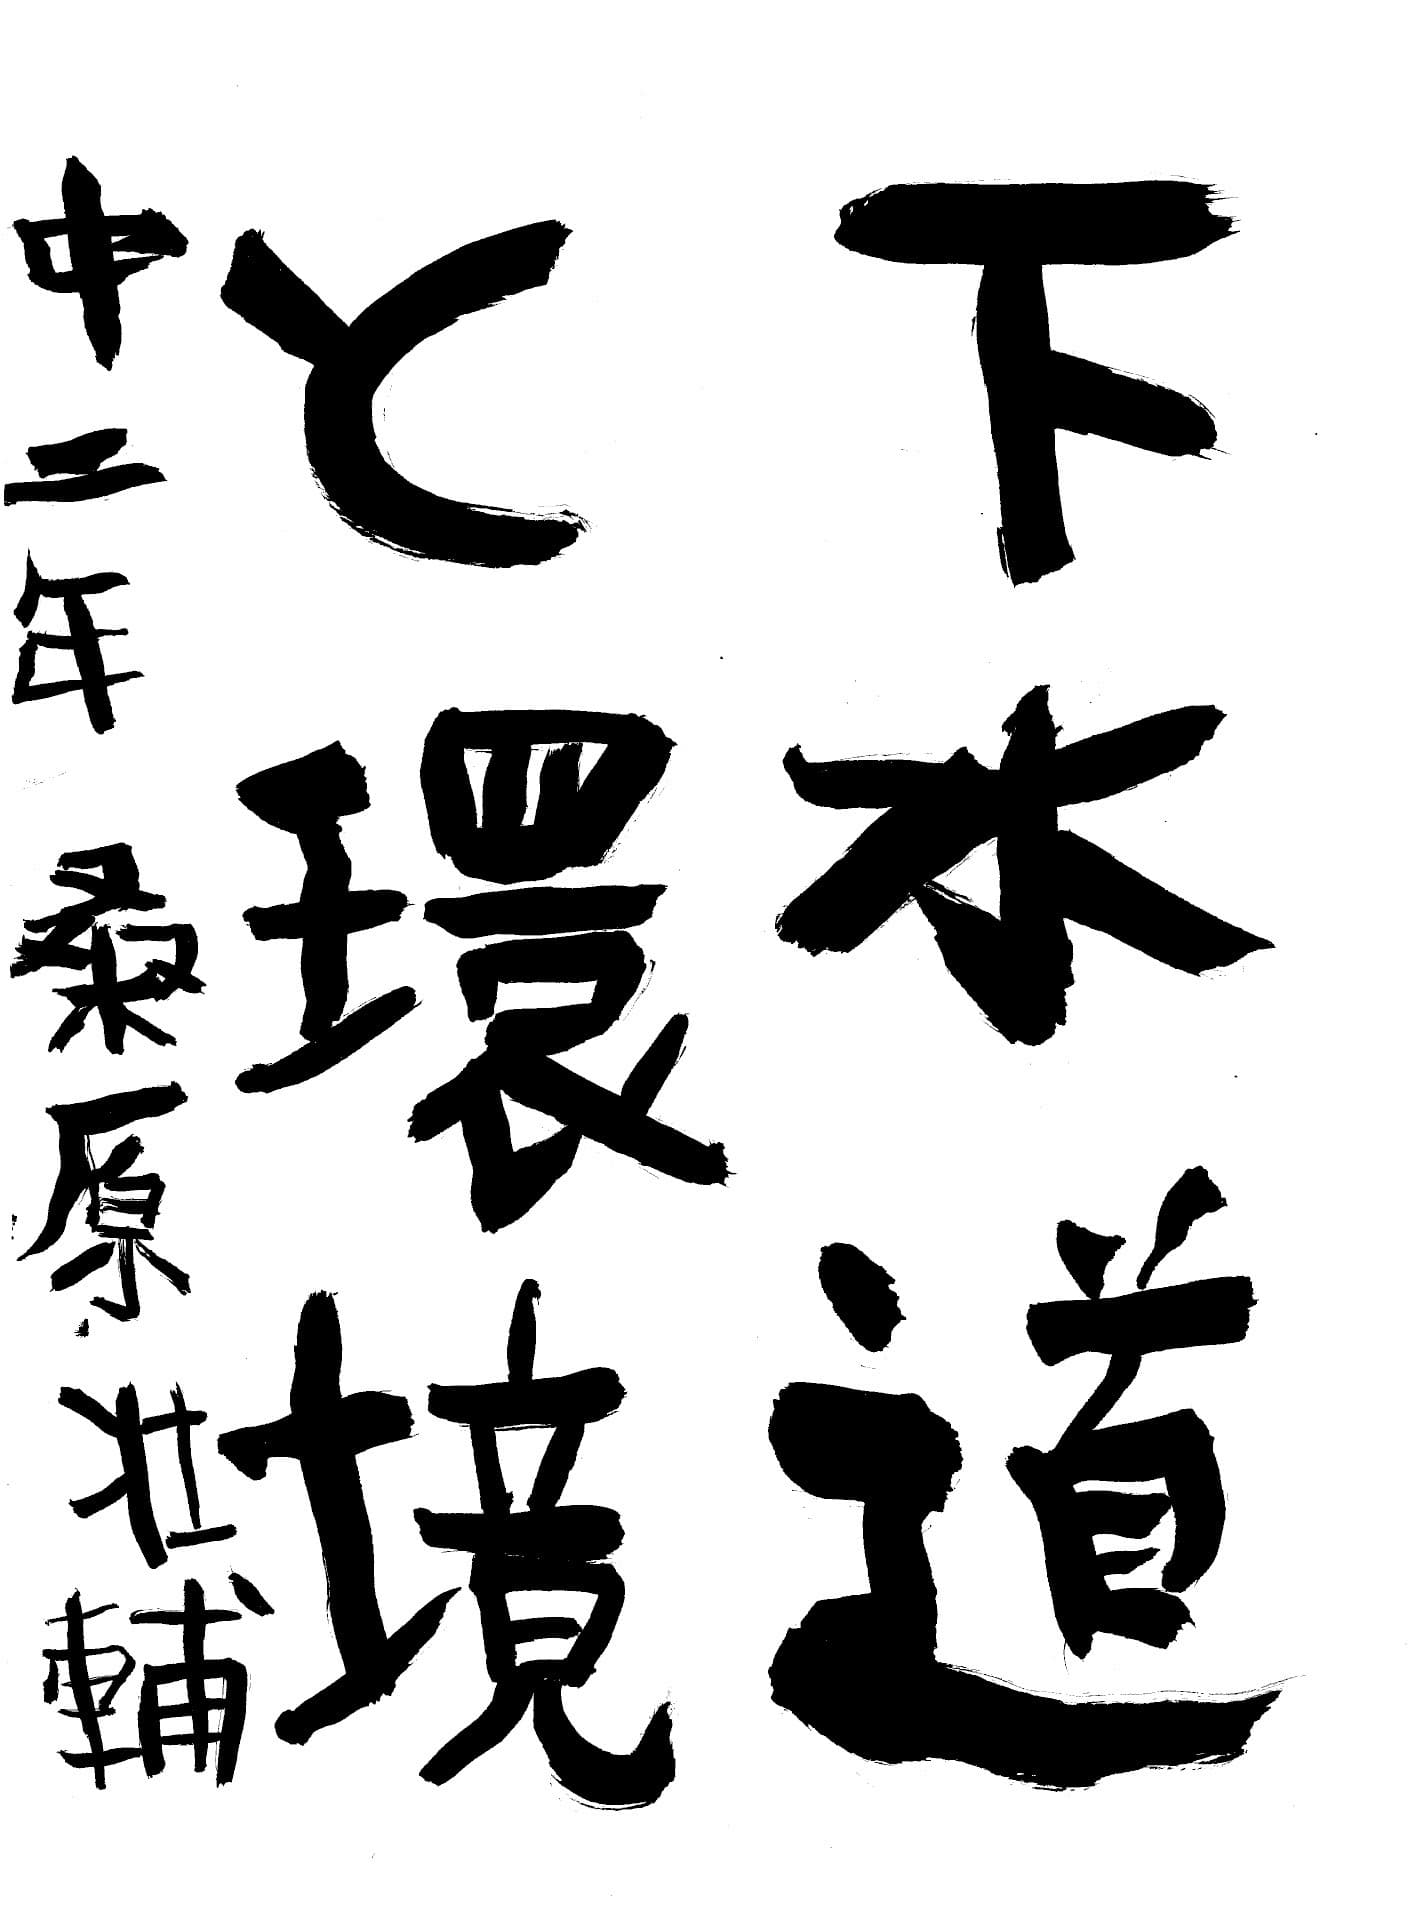 下水道
と環境
中二年 桑原壮輔